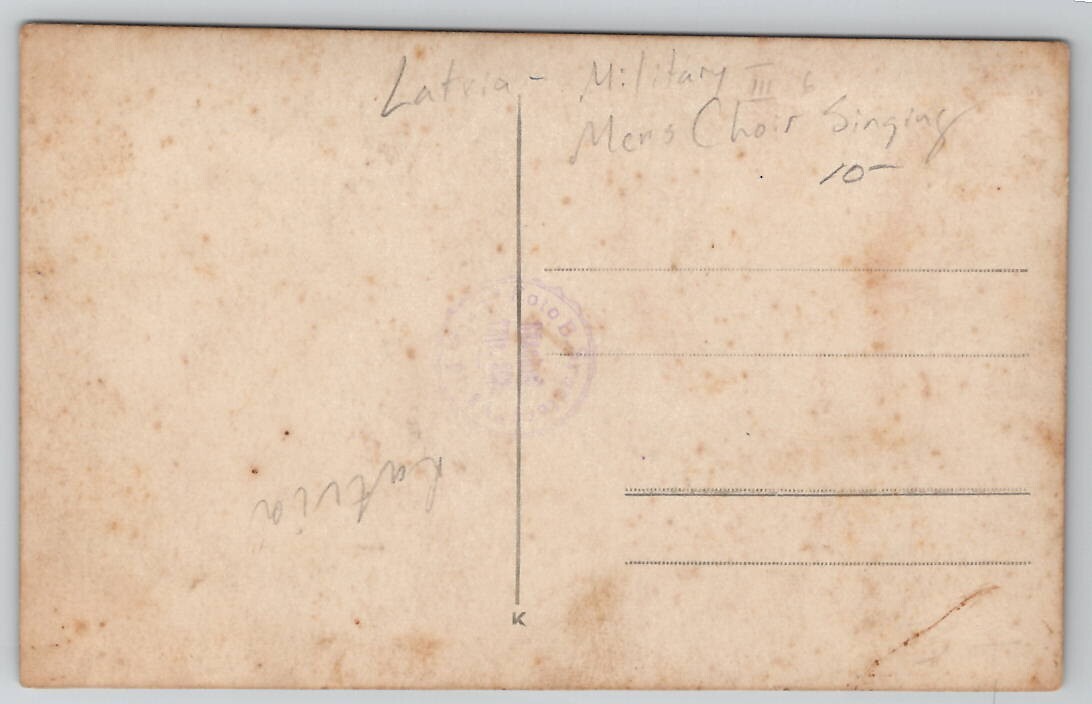 Latvia - Military III 6
Mens Choir Singing
10-
Latvia
K